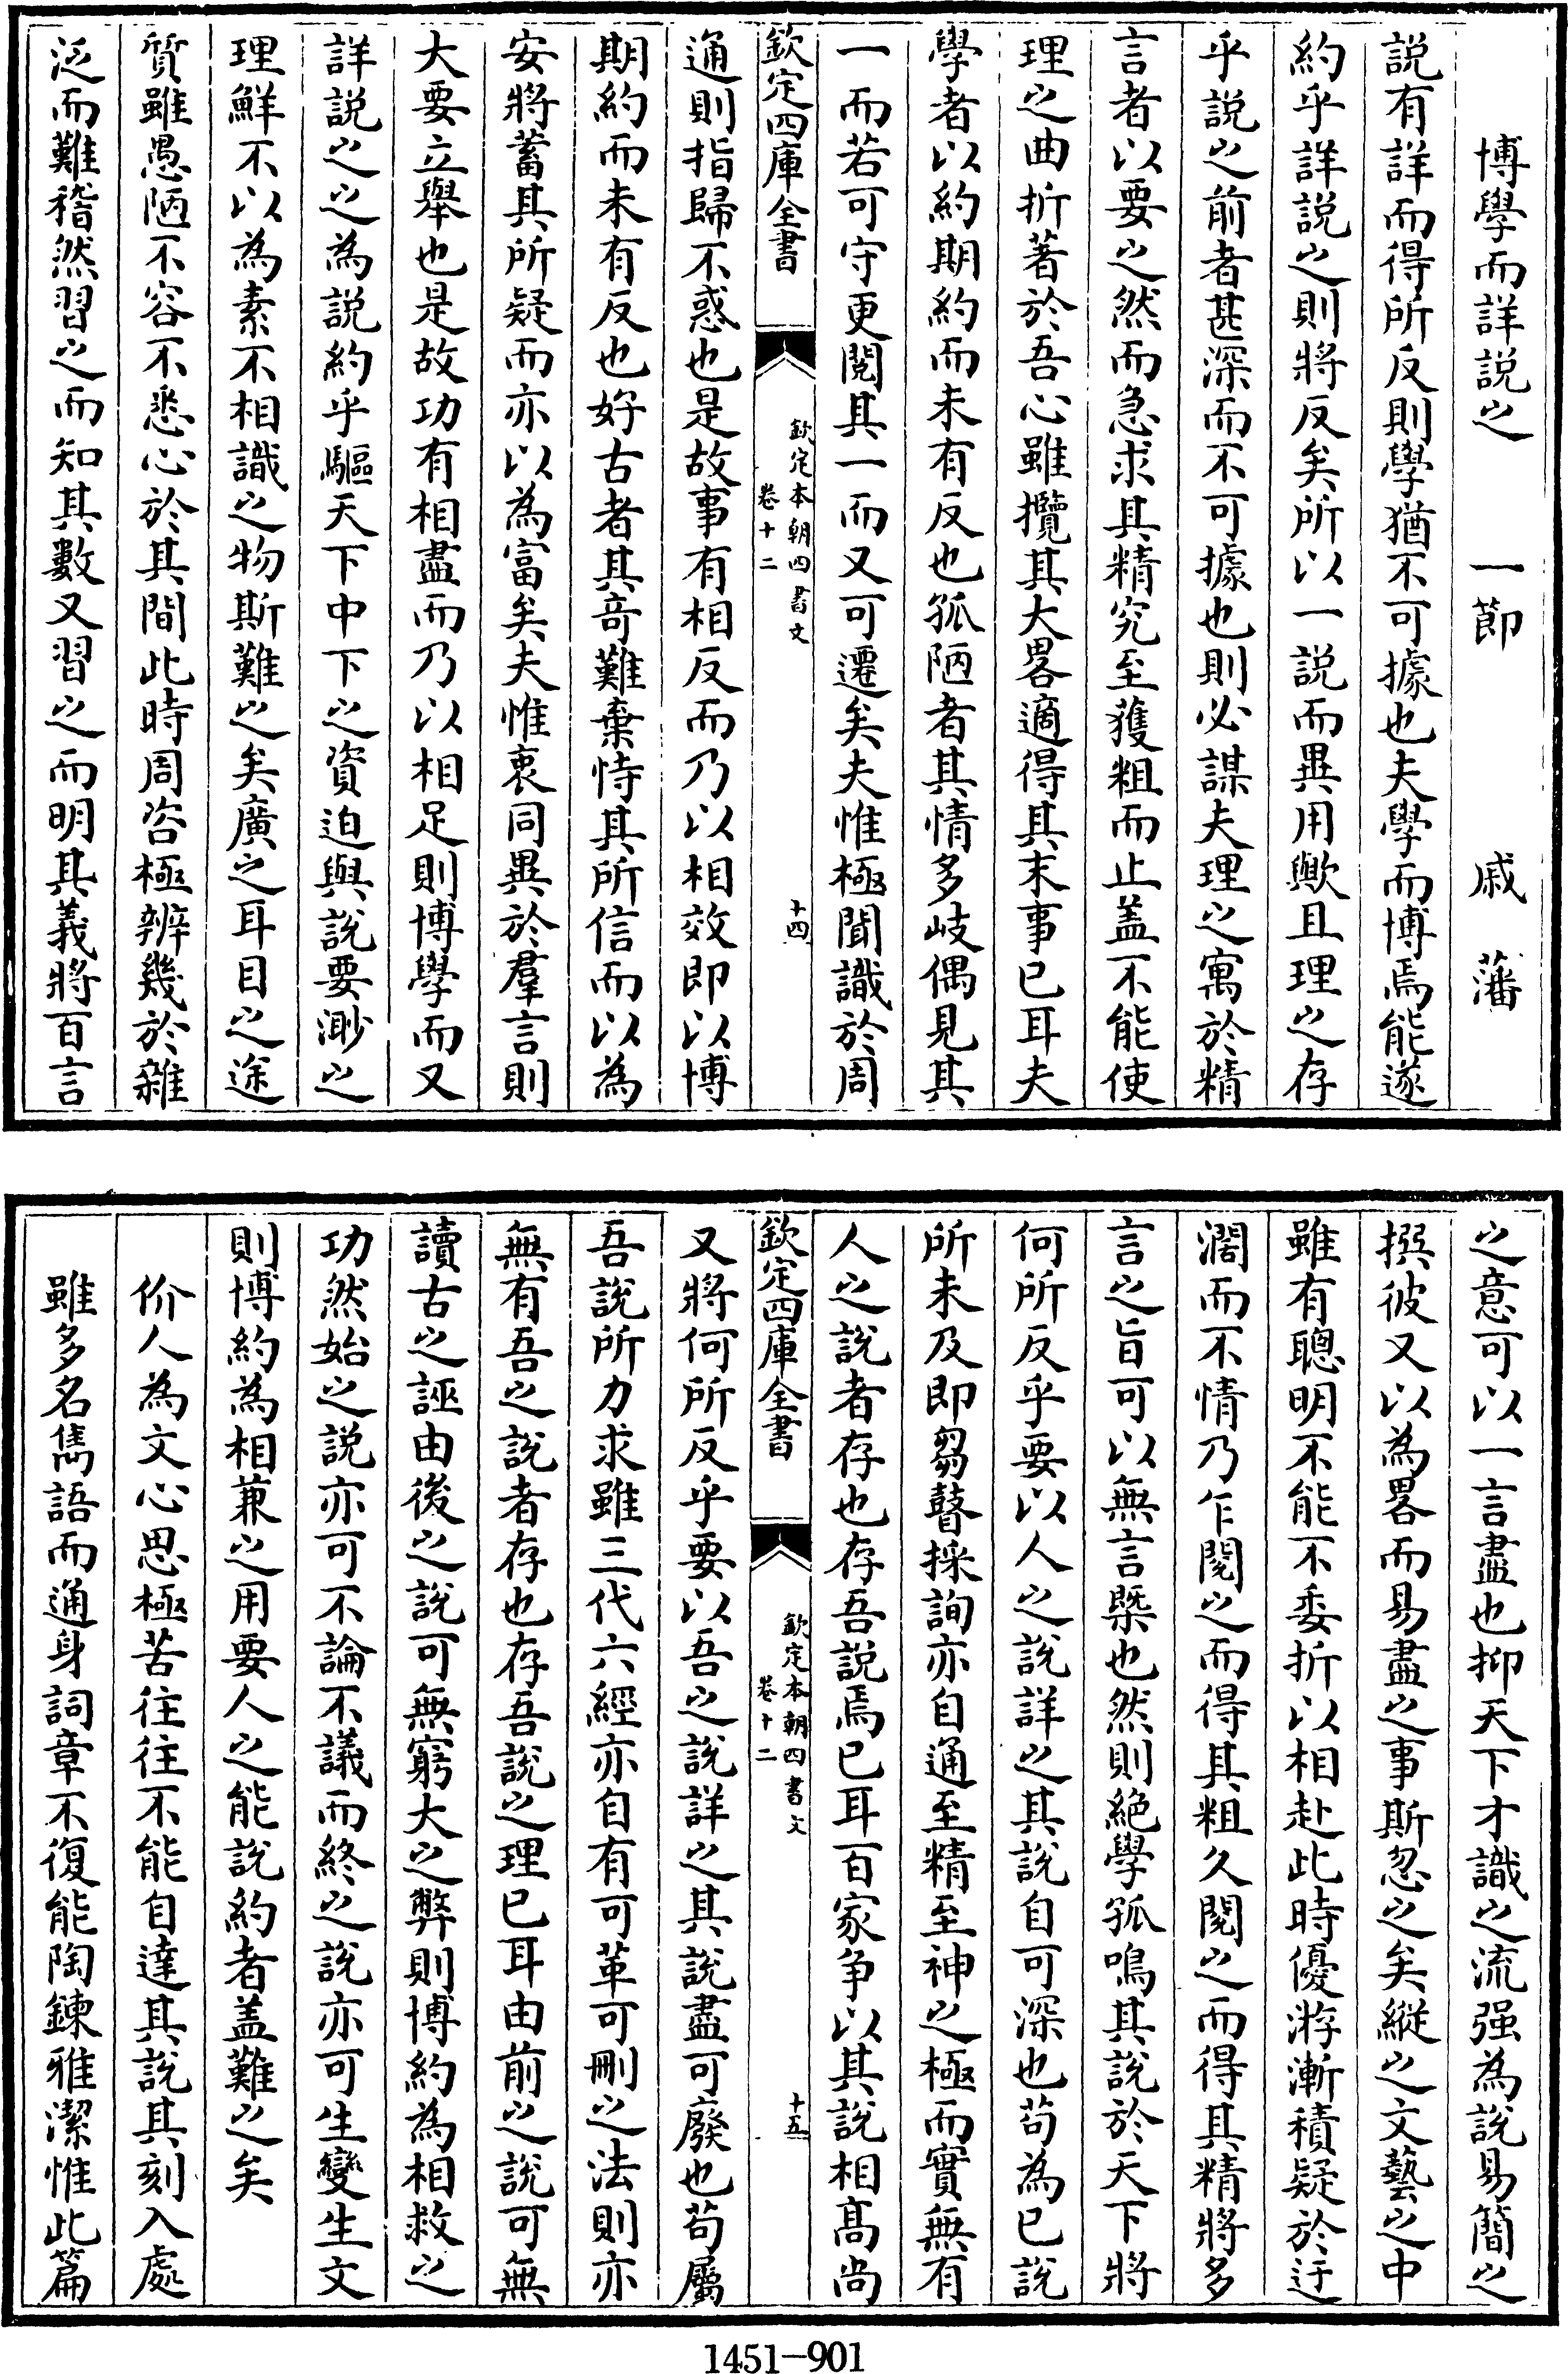 博學而詳説之　一節　戚藩
説有詳而得所反則學猶不可據也夫學而博焉能遂
約乎詳説之則將反矣所以一説而異用歟且理之存
乎説之前者甚深而不可據也則必謀夫理之寓於精
言者以要之然而急求其精究至獲粗而止盖不能使
理之曲折著於吾心雖攬其大畧適得其末事已耳夫
學者以約期約而未有反也孤陋者其情多岐偶見其
一而若可守更閲其一而又可遷矣夫惟極聞識於周
欽定四庫全書
欽定本朝四書文
卷十二
十四
通則指歸不惑也是故事有相反而乃以相效即以博
期約而未有反也好古者其奇難棄恃其所信而以為
安將蓄其所疑而亦以為富矣夫惟衷同異於羣言則
大要立舉也是故功有相盡而乃以相足則博學而又
詳説之之為説約乎驅天下中下之資迫與說要渺之
理鮮不以為素不相識之物斯難之矣廣之耳目之途
質雖愚陋不容不悉心於其間此時周咨極辨幾於雜
泛而難稽然習之而知其數又習之而明其義將百言
之意可以一言盡也抑天下才識之流强為說易簡之
撰彼又以為畧而易盡之事斯忽之矣縱之文藝之中
雖有聰明不能不委折以相赴此時優游漸積疑於迂
濶而不情乃乍閲之而得其粗久閲之而得其精將多
言之旨可以無言槩也然則絶學孤鳴其説於天下將
何所反乎要以人之說詳之其說自可深也苟為已說
所未及即芻蕘採詢亦自通至精至神之極而實無有
人之說者存也存吾説焉已耳百家争以其說相髙尚
欽定四庫全書
欽定本朝四書文
卷十二
十五
又將何所反乎要以吾之說詳之其說盡可廢也苟屬
吾說所力求雖三代六經亦自有可革可刪之法則亦
無有吾之說者存也存吾說之理已耳由前之說可無
讀古之誣由後之說可無窮大之弊則博約為相救之
功然始之説亦可不論不議而終之說亦可生變生文
則博約為相兼之用要人之能說約者盖難之矣
价人為文心思極苦往往不能自達其說其刻入處
雖多名雋語而通身詞章不復能陶鍊雅潔惟此篇
1451-901